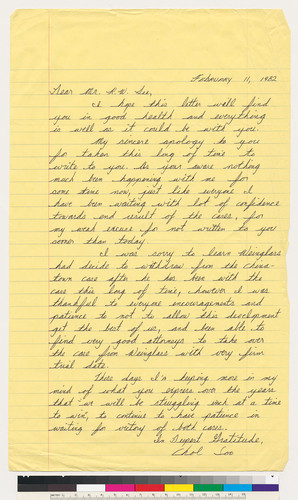 February 11, 1982
Dear Mr. K.W. Lee,
I hope this letter well find
you in good health and everything
is well as it could be with you.
My sincere apology to you
for taken this long of time to
write to you. As your aware nothing
much been happening with me for
some time now, just like everyone I
have been waiting with lot of confidence
towards end result of the cases, for
my weak excuse for not written to you
sooner than today.
I was sorry to learn Weinglass
had decide to withdrew from old china-
town case after he has been with the
case this long of time, however I was
thankful to everyone encouragements and
patience to not to allow this development
get the best of us, and been able to
find very good attorneys to take over
the case from Weinglass with very firm
trial date.
These days I'm keeping more in my
mind of what you express over the years
that "we will be struggling inch at a time
to win", to continue to have patience in
waiting for victory of both cases.
In Deepest Gratitude,
Chol Soo